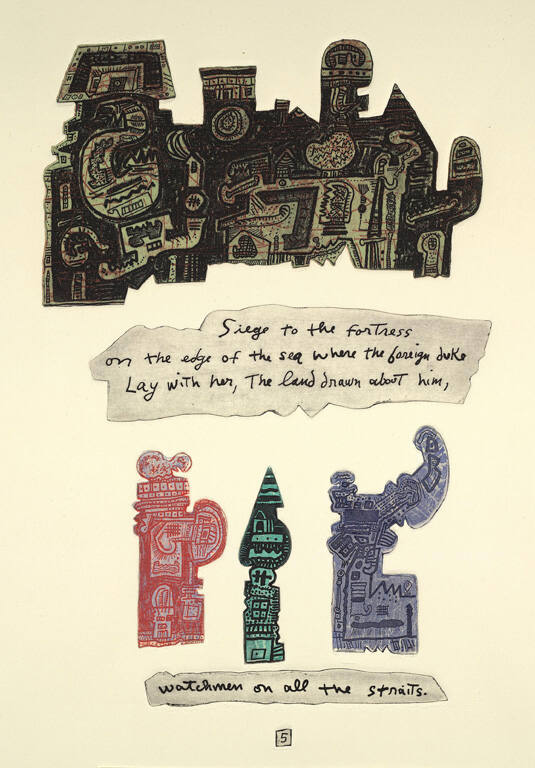 Siege to the fortress
on the edge of the sea where the foreign duke
Lay with her, The land drawn about him,
watchmen on all the straits.
5